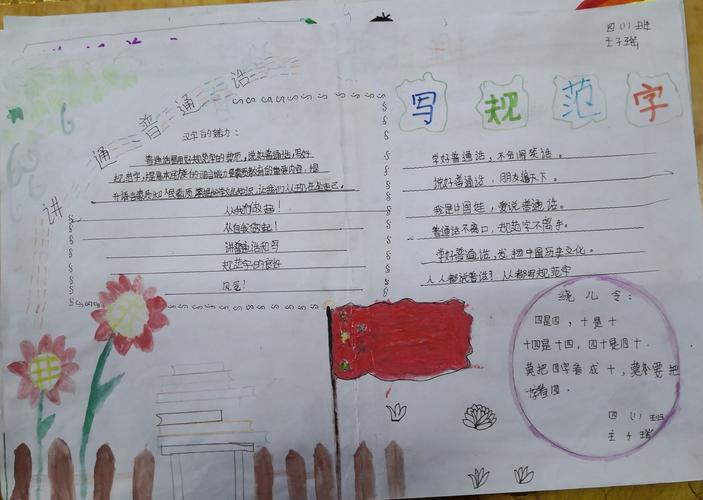 四(1)班
王子瑶
讲普通话
写规范字
汉字的魅力:
普通话是用好规范字的典范,说好普通话,写好
规范字,提高本民族的语言能力是素质教育的重要内容,提
升语言素质和人民素质
让我们从现在起自己。
从我们做起!
从自我做起!
讲普通话和写
规范字的良好
风气!
学好普通话,不会闹笑话。
说好普通话,朋友遍天下。
我是中国娃,爱说普通话。
普通话不离口,规范字不离手。
学好普通话,发扬中国历史文化。
人人都说普话?人人都用规范字
绕儿令:
四是四,十是十
十四是十四,四十是四十.
莫把四字看成十,莫要把
十看四.
四(1)班
王子瑶